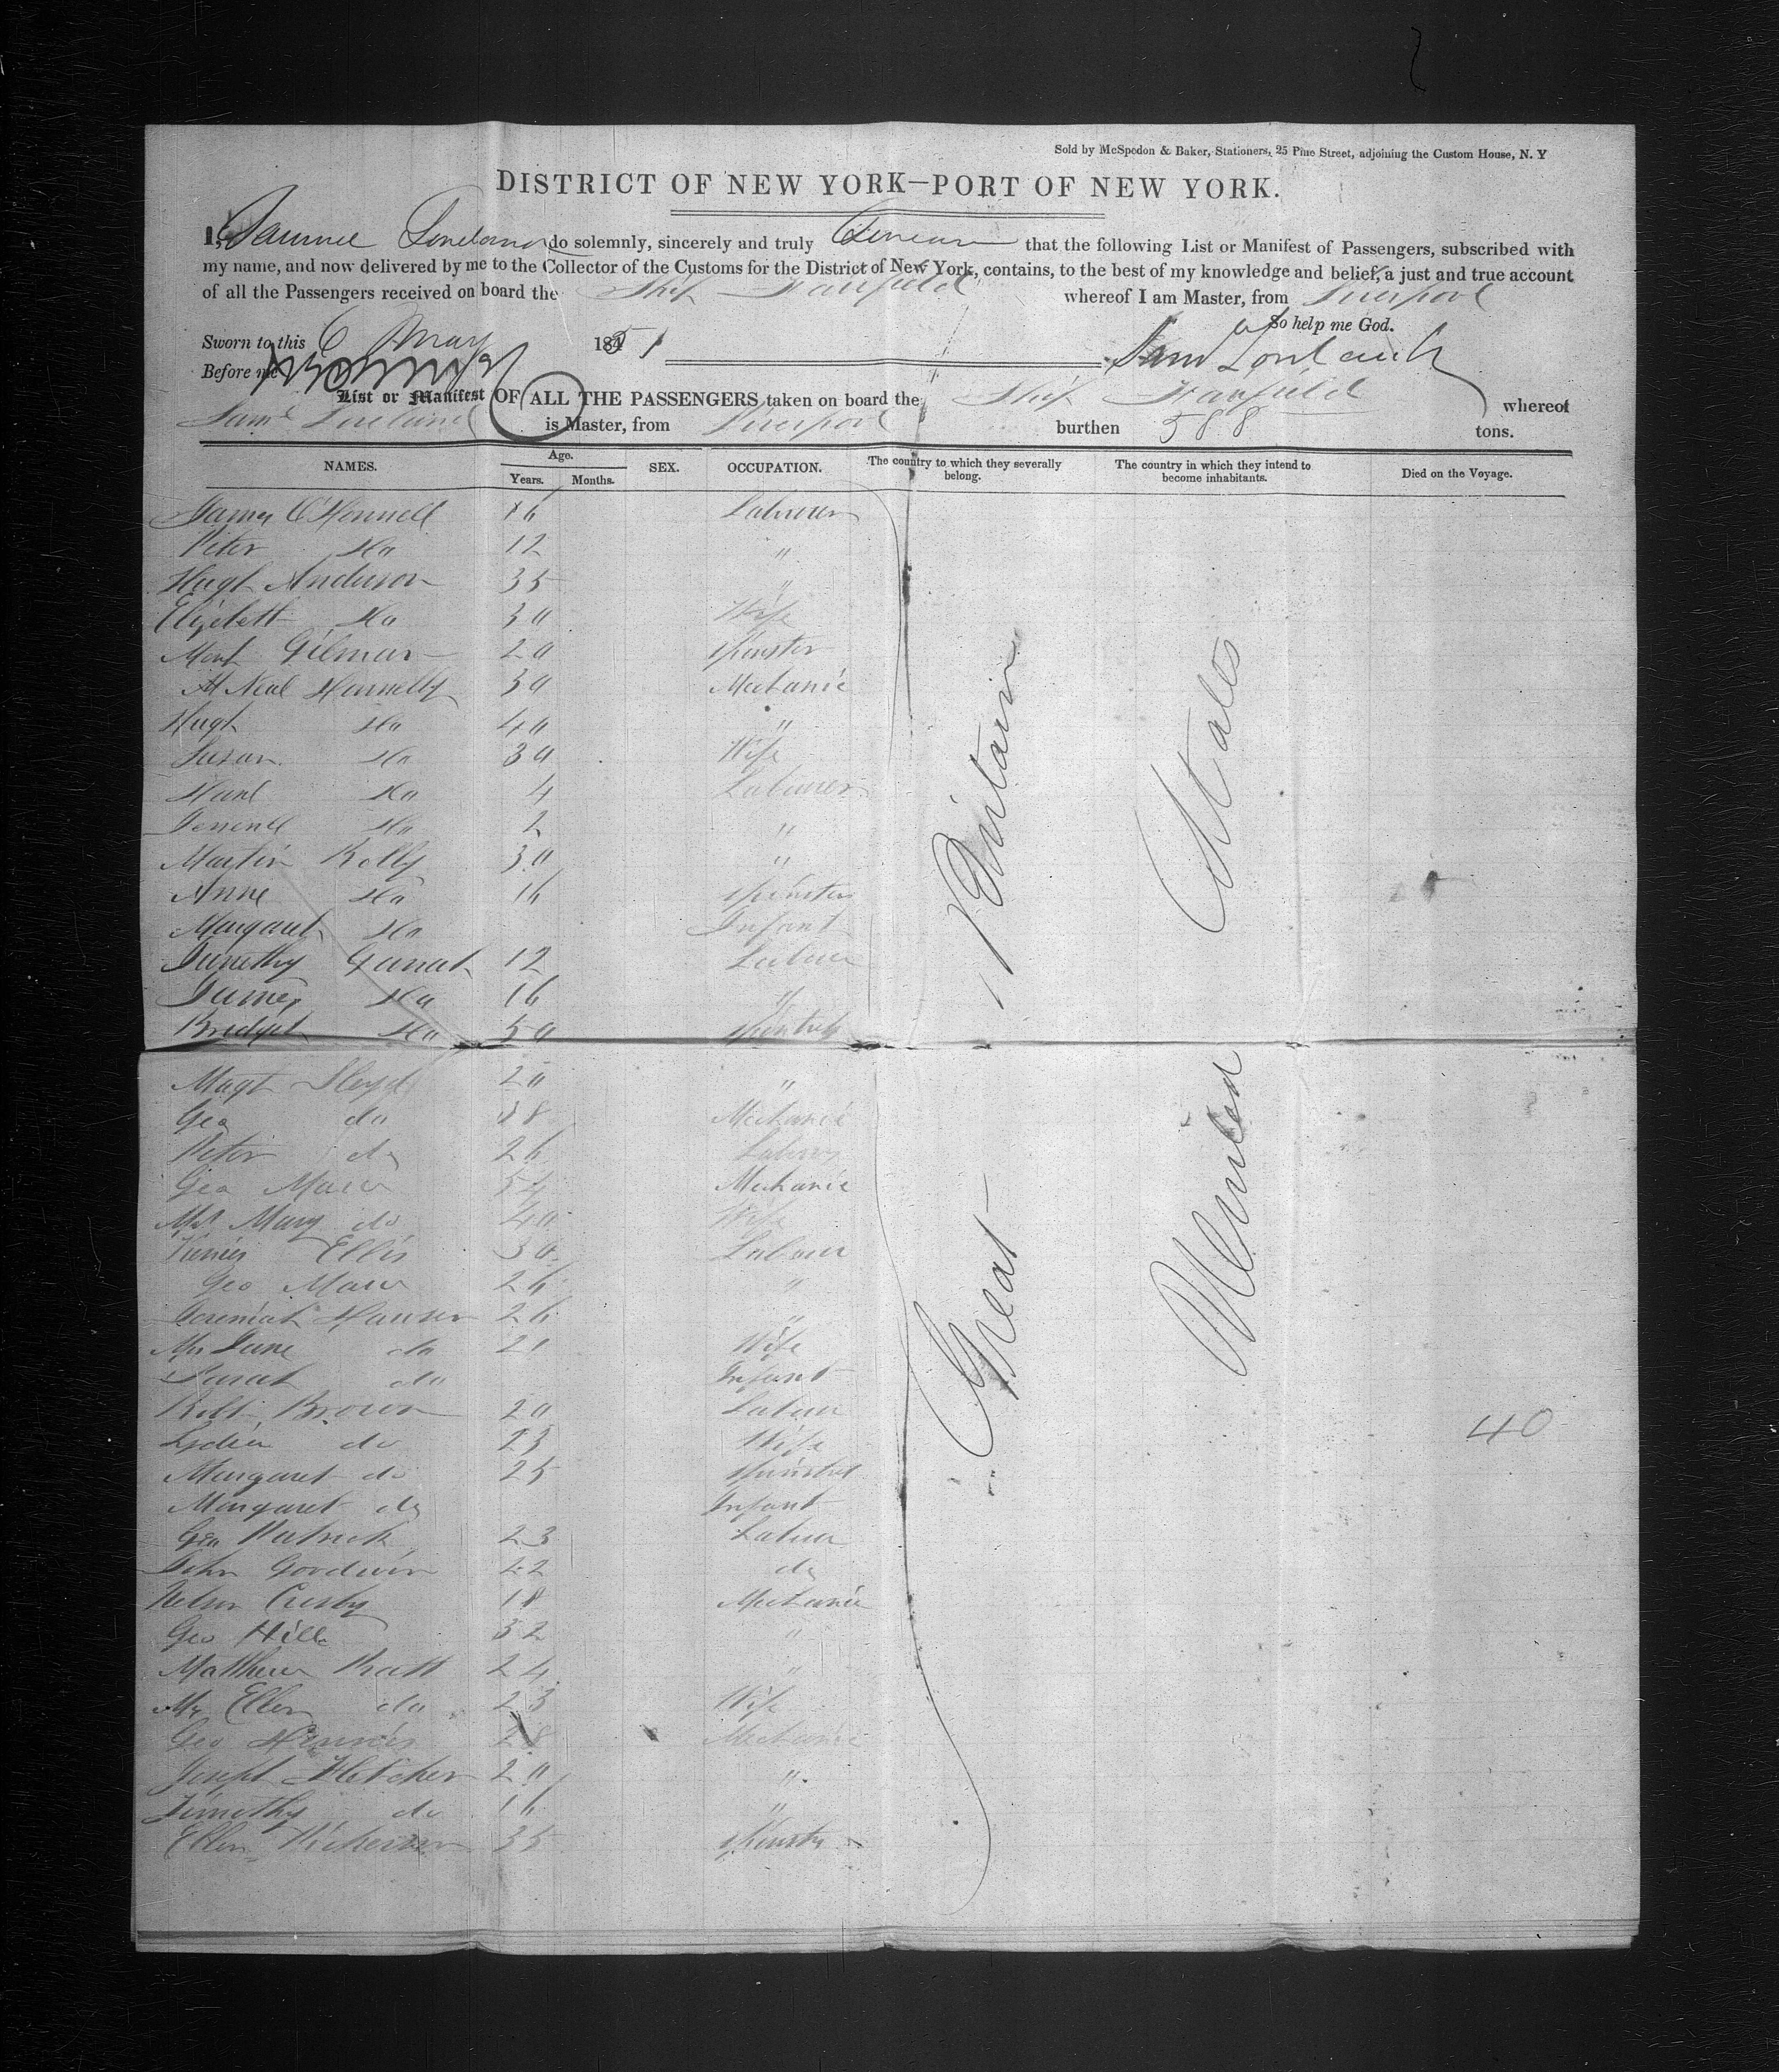 Sold by McSpedon & Baker, Stationers, 25 Pine Street, adjoining the Custom House, N. Y
DISTRICT OF NEW YORK—PORT OF NEW YORK.
I, Samuel do solemnly, sincerely and truly that the following List or Manifest of Passengers, subscribed with
my name, and now delivered by me to the Collector of the Customs for the District of New York, contains, to the best of my knowledge and belief, a just and true account
of all the Passengers received on board the Ship Fairfield whereof I am Master, from Liverpool
So help me God.
Sworn to this 6 May 1851
Before me
List or Manifest OF ALL THE PASSENGERS taken on board the Ship Fairfield whereof
Saml is Master, from Liverpool burthen 588 tons.
NAMES. Age. Years. Months. SEX. OCCUPATION. The country to which they severally belong. The country in which they intend to become inhabitants. Died on the Voyage.
James 16 Labourer
Peter Do 12 "
Hugh Anderson 35 "
Elizabeth Do 30 Wife
Gilmar 20 Spinster
30 Mechanic
Hugh Do 40 "
Susan Do 30 Wife
Do 4 Labourer
Do 2 "
Martin Kelly 30 "
Anne Do 16 Spinster
Margaret Do Infant
12 Labour
James Do 16 "
Bridget Do 50
Magt 20 "
Geo do 18 Mechanic
Peter do 26
Geo Maw 54 Mechanic
Mrs Mary do 40 Wife
Ellis 30 Labour
Geo Maw 26 "
Jeremiah 26 "
Mrs Jane do 21 Wife
Sarah do Infant
Robt Brown 20 Labour
Lydia do 23 Wife
Margaret do 25 Spinster
Margaret do Infant
Geo 23 Labour
John Goodwin 22 do
Nelson Crosby 18 Mechanic
Geo Hill 32 "
Matthew Pratt 24 "
Mrs Ellen do 23 Wife
Geo 28 Mechanic
Joseph Fletcher 20 "
Timothy do 16 "
Ellen 35 Spinster
Great Britain
United States
40